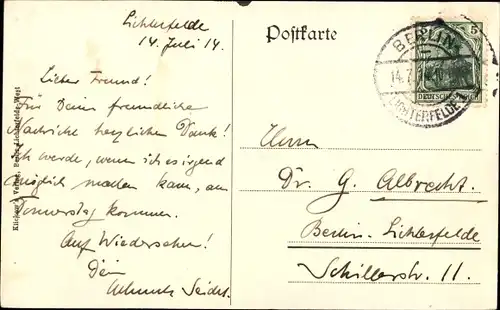 Lichterfelde
14. Juli 14.
Lieber Freund!
Für Deine freundliche
Nachricht herzlichen Dank!
Ich werde, wenn ich es irgend
möglich machen kann, am
Donnerstag kommen.
Auf Wiedersehen!
Dein
Seidel.
Postkarte
5
BERLIN
14.7.
LICHTERFELDE 1
DEUTSCHES REICH
Herrn
Dr. G. Albrecht.
Berlin-Lichterfelde
Schillerstr. 11.
Verlag, Lichterfelde-West